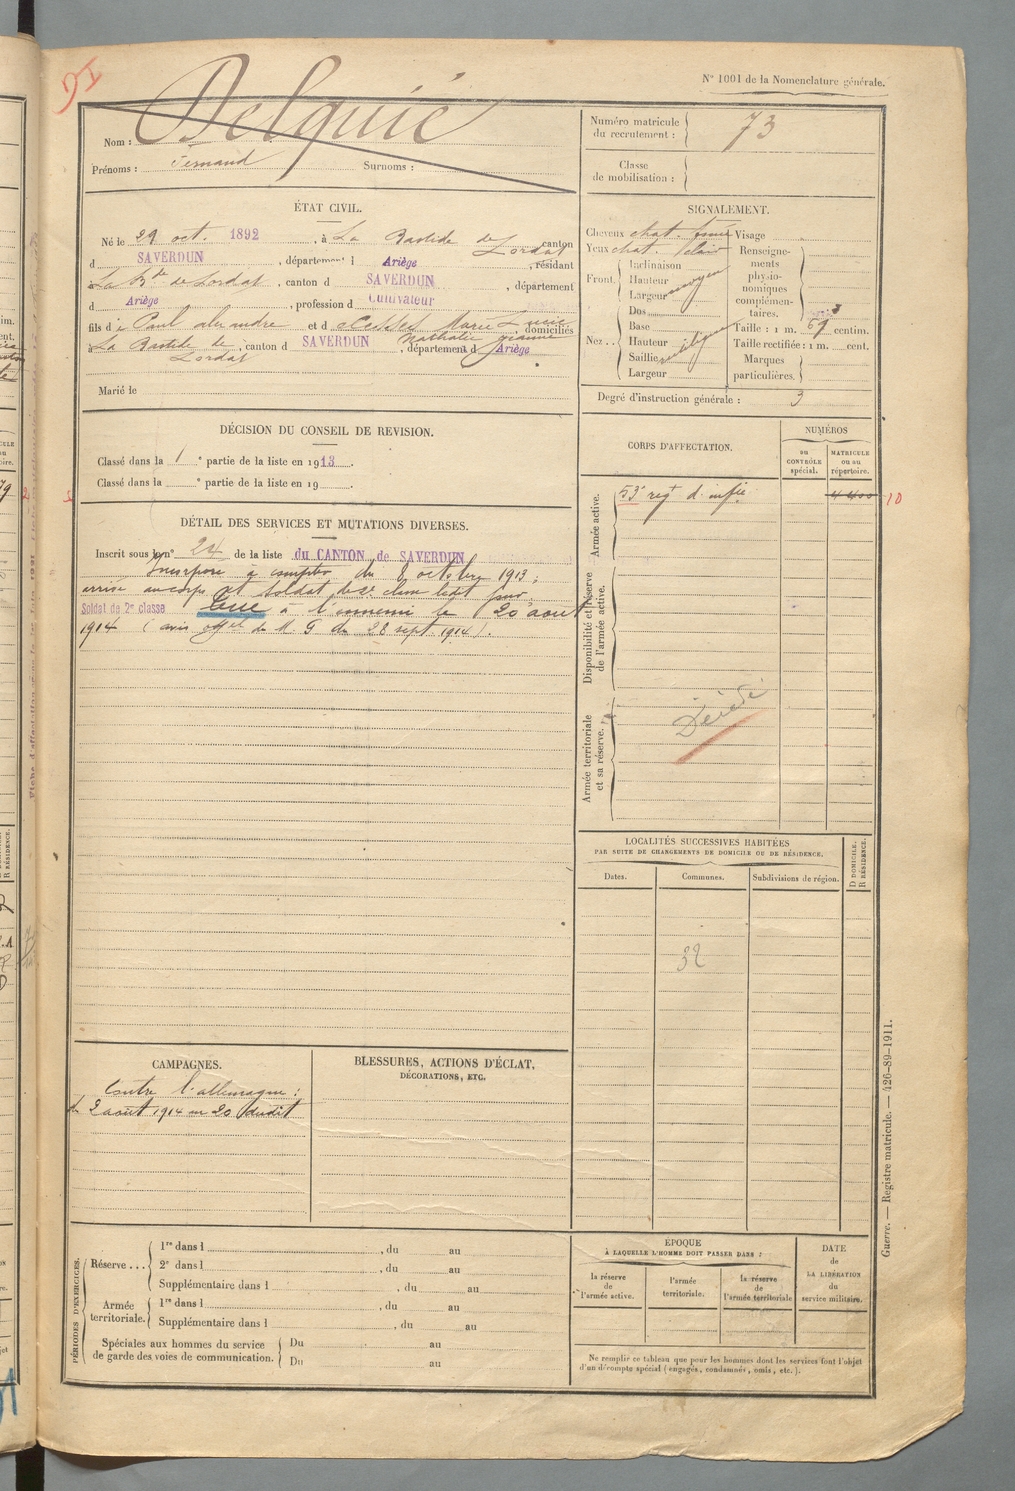 N° 1001 de la Nomenclature générale.
Nom : Delquié
Prénoms : Fernand Surnoms :
Numéro matricule du recrutement : 73
Classe de mobilisation :
ÉTAT CIVIL.
Né le 29 oct. 1892, à La Bastide de Lordat canton
d SAVERDUN, département d Ariège, résidant
La Bde de Lordat, canton d SAVERDUN, département
d Ariège, profession d Cultivateur
fils d e Paul alexandre et d Marie Lucie Nathalie Jeanne, domiciliés
à La Bastide de Lordat, canton d SAVERDUN, département d Ariège
Marié le
SIGNALEMENT.
Cheveux chat. foncé Visage
Yeux chat. clair
Front. Inclinaison
Hauteur moyen
Largeur
Nez.. Dos
Base
Hauteur rectiligne
Saillie
Largeur
Renseignements physionomiques complémentaires.
Taille : 1 m. 69 centim.
Taille rectifiée : 1 m. cent.
Marques particulières.
Degré d'instruction générale : 3
DÉCISION DU CONSEIL DE REVISION.
Classé dans la 1e partie de la liste en 1913.
Classé dans la e partie de la liste en 19 .
CORPS D'AFFECTATION.
NUMÉROS
au CONTRÔLE spécial.
MATRICULE ou au répertoire.
Armée active.
53e regt d'infie
10
Disponibilité et réserve de l'armée active.
Armée territoriale et sa réserve.
Décédé
DÉTAIL DES SERVICES ET MUTATIONS DIVERSES.
Inscrit sous le n° 24 de la liste du CANTON de SAVERDUN
Incorporé à compter du 8 octobre 1913;
arrivé au corps et soldat de 2e classe ledit jour
Soldat de 2e classe Tué à l'ennemi le 20 août
1914 (avis offel du M. G du 28 sept 1914).
LOCALITÉS SUCCESSIVES HABITÉES
PAR SUITE DE CHANGEMENTS DE DOMICILE OU DE RÉSIDENCE.
Dates.
Communes.
Subdivisions de région.
D DOMICILE.
R RÉSIDENCE.
32
CAMPAGNES.
Contre l'allemagne :
du 2 août 1914 au 20 dudit
BLESSURES, ACTIONS D'ÉCLAT,
DÉCORATIONS, ETC.
PÉRIODES D'EXERCICES.
Réserve...
1re dans l , du au
2e dans l , du au
Supplémentaire dans l , du au
Armée territoriale.
1re dans l , du au
Supplémentaire dans l , du au
Spéciales aux hommes du service de garde des voies de communication.
Du au
Du au
ÉPOQUE
À LAQUELLE L'HOMME DOIT PASSER DANS :
la réserve de l'armée active.
l'armée territoriale.
la réserve de l'armée territoriale
DATE de LA LIBÉRATION du service militaire.
Ne remplir ce tableau que pour les hommes dont les services font l'objet
d'un décompte spécial (engagés, condamnés, omis, etc.).
Guerre. — Registre matricule. — 426-89-1911.